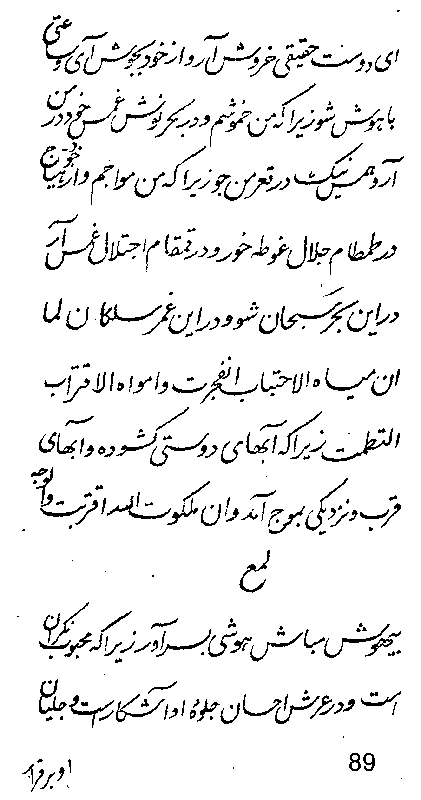 ای دوست حقیقی خروش آر و از خود بجوش آی و ساعتی
با هوش شو زیرا که من خموشم و در بحر نوش غمس خود در من
آر و همین نیک در قعر من جو زیرا که من مواجم و از هیاج
در طمطام جلال غوطه خور و در قمقام اجتلال غمس آر
در این بحر سبحان شو و در این غمر سلکان لما
ان میاه الاحتباب انفجرت و امواه الاقتراب
التطمت زیرا که آبهای دوستی گشوده و آبهای
قرب و نزدیکی بموج آمد و ان ملکوت الله اقتربت و الوجه
لمع
بیهوش مباش هوشی بسر آور زیرا که محبوب نگران
است و در عرش احسان جلوهٔ او آشکار است و جلیان
او برقرار
89